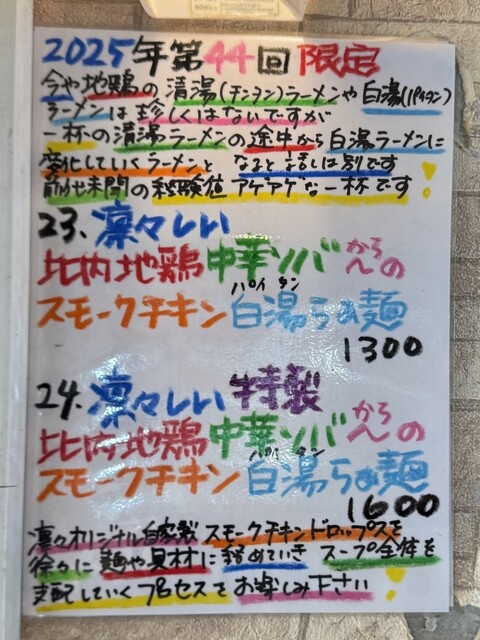 2025年第44回限定
今や地鶏の清湯(チンタン)ラーメンや白湯(パイタン)
ラーメンは珍しくはないですが
一杯の清湯ラーメンの途中から白湯ラーメンに
変化していくラーメンと なると話しは別です
前代未聞の経験値 アゲアゲな一杯です!
23、凛々しい
比内地鶏中華ソバからんの
スモークチキン白湯らぁ麺
パイタン
1300
24、凛々しい特製
比内地鶏中華ソバからんの
スモークチキン白湯らぁ麺
パイタン
1600
凛々オリジナル自家製スモークチキンドロップスを
徐々に麺や具材に絡めていき スープ全体を
支配していくプロセスをお楽しみ下さい!